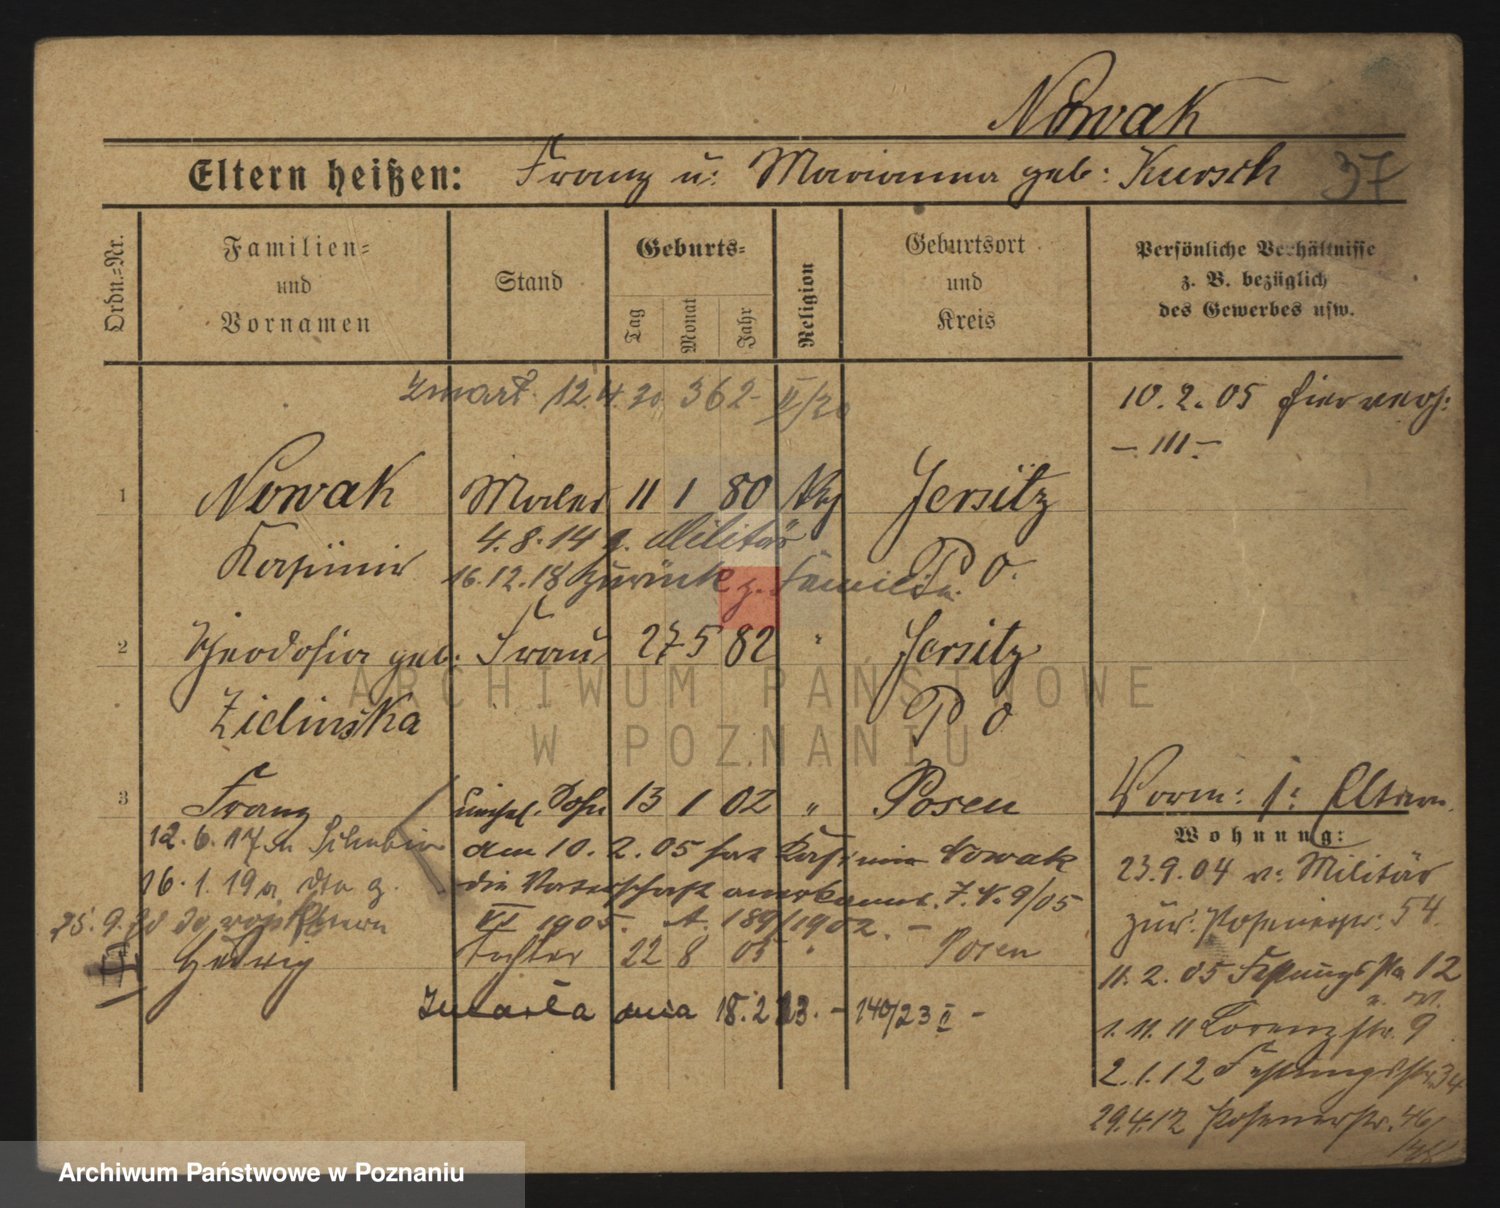 Nowak
Eltern heißen: Franz u: Marianna geb: Kursch 37
Ordn.=Nr.
Familien=
und
Vornamen
Stand
Geburts=
Tag
Monat
Jahr
Religion
Geburtsort
und
Kreis
Persönliche Verhältnisse
z. B. bezüglich
des Gewerbes usw.
zmarł 12.4.20 362 II/20
10. 2. 05 hier verh:
– III –
1 Nowak Maler 11 1 80 Jersitz
4. 8. 14 z. Militär
Kasimir P. O.
16. 12. 18 zurück z. Familie
2 Theodosia geb. Frau 27 5 82 " Jersitz
Zielinska P O
ARCHIWUM PAŃSTWOWE
W POZNANIU
3 Franz Sohn 13 1 02 " Posen
12. 6. 17 n Schubin
am 10. 2. 05 hat Kasimir Nowak
16. 1. 19 z.
die Vaterschaft anerkannt. 9/05
25. 9. 20 Eltern
VI 1905. A. 189/1902. –
Hedwig Tochter 22 8 05 " Posen
Zmarła dnia 18. 2 23. – 140/23 –
Vorm: s: Eltern.
Wohnung:
23. 9. 04 v: Militär
zur: Posenerstr: 54.
11. 2. 05 Festungsstr 12
1. 11. 11 Lorenzstr. 9
2. 1. 12 Festungsstr. 34
29. 4. 12 Posenerstr. 46/
Archiwum Państwowe w Poznaniu